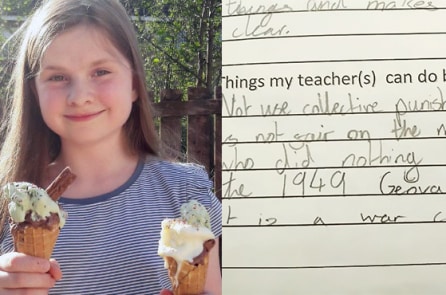 things and makes
clear.
Things my teacher(s) can do b
Not use collective punis
s not fair on the
who did nothing
the 1949 Geneva
t is a war c